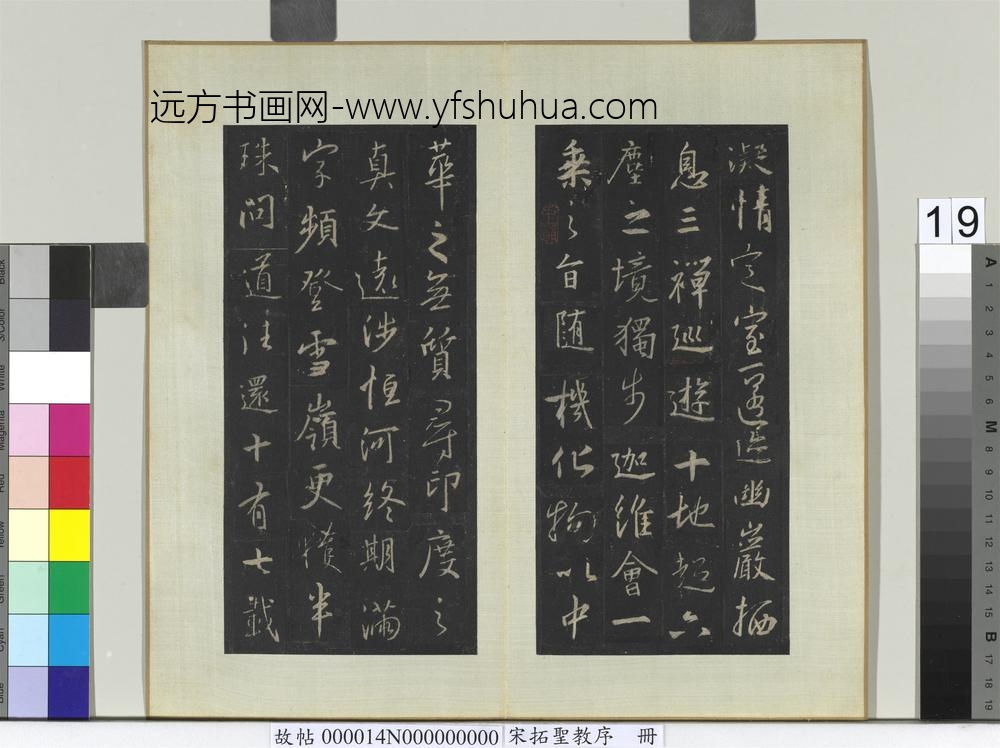 远方书画网-www.yfshuhua.com
凝情定室匿迹幽巖栖
息三禪巡遊十地超六
塵之境獨步迦維會一
乘之旨随機化物以中
華之無質尋印度之
真文遠涉恒河終期滿
字頻登雪嶺更獲半
珠問道往還十有七載
19
Black
3/Color
White
Magenta
Red
Yellow
Green
Cyan
Blue
A
1
2
3
4
5
6
M
8
9
10
11
12
13
14
15
B
17
18
19
故帖 000014N000000000 宋拓聖教序 冊